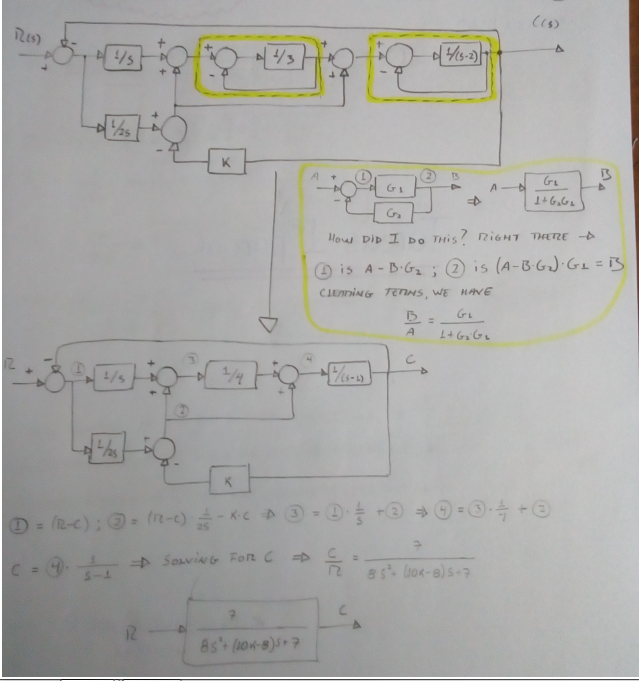 R(s) C(s)
1/s 1/3 1/(s-2)
1/2s
K
A + ① G1 ② B ⇒ A G1/(1+G2G1) B
G2
HOW DID I DO THIS? RIGHT THERE →
① is A-B·G2 ; ② is (A-B·G2)·G1 = B
CLEARING TERMS, WE HAVE
B/A = G1/(1+G2G1)
R ① 1/s ③ 1/4 ④ 1/(s-1) C
②
1/2s
K
① = (R-C) ; ② = (R-C) 1/2s - K·C ⇒ ③ = ①·1/s + ② ⇒ ④ = ③·1/4 + ②
C = ④· 1/(s-1) ⇒ SOLVING FOR C ⇒ C/R = 7/(8s²+(10K-8)s+7)
R 7/(8s²+(10K-8)s+7) C